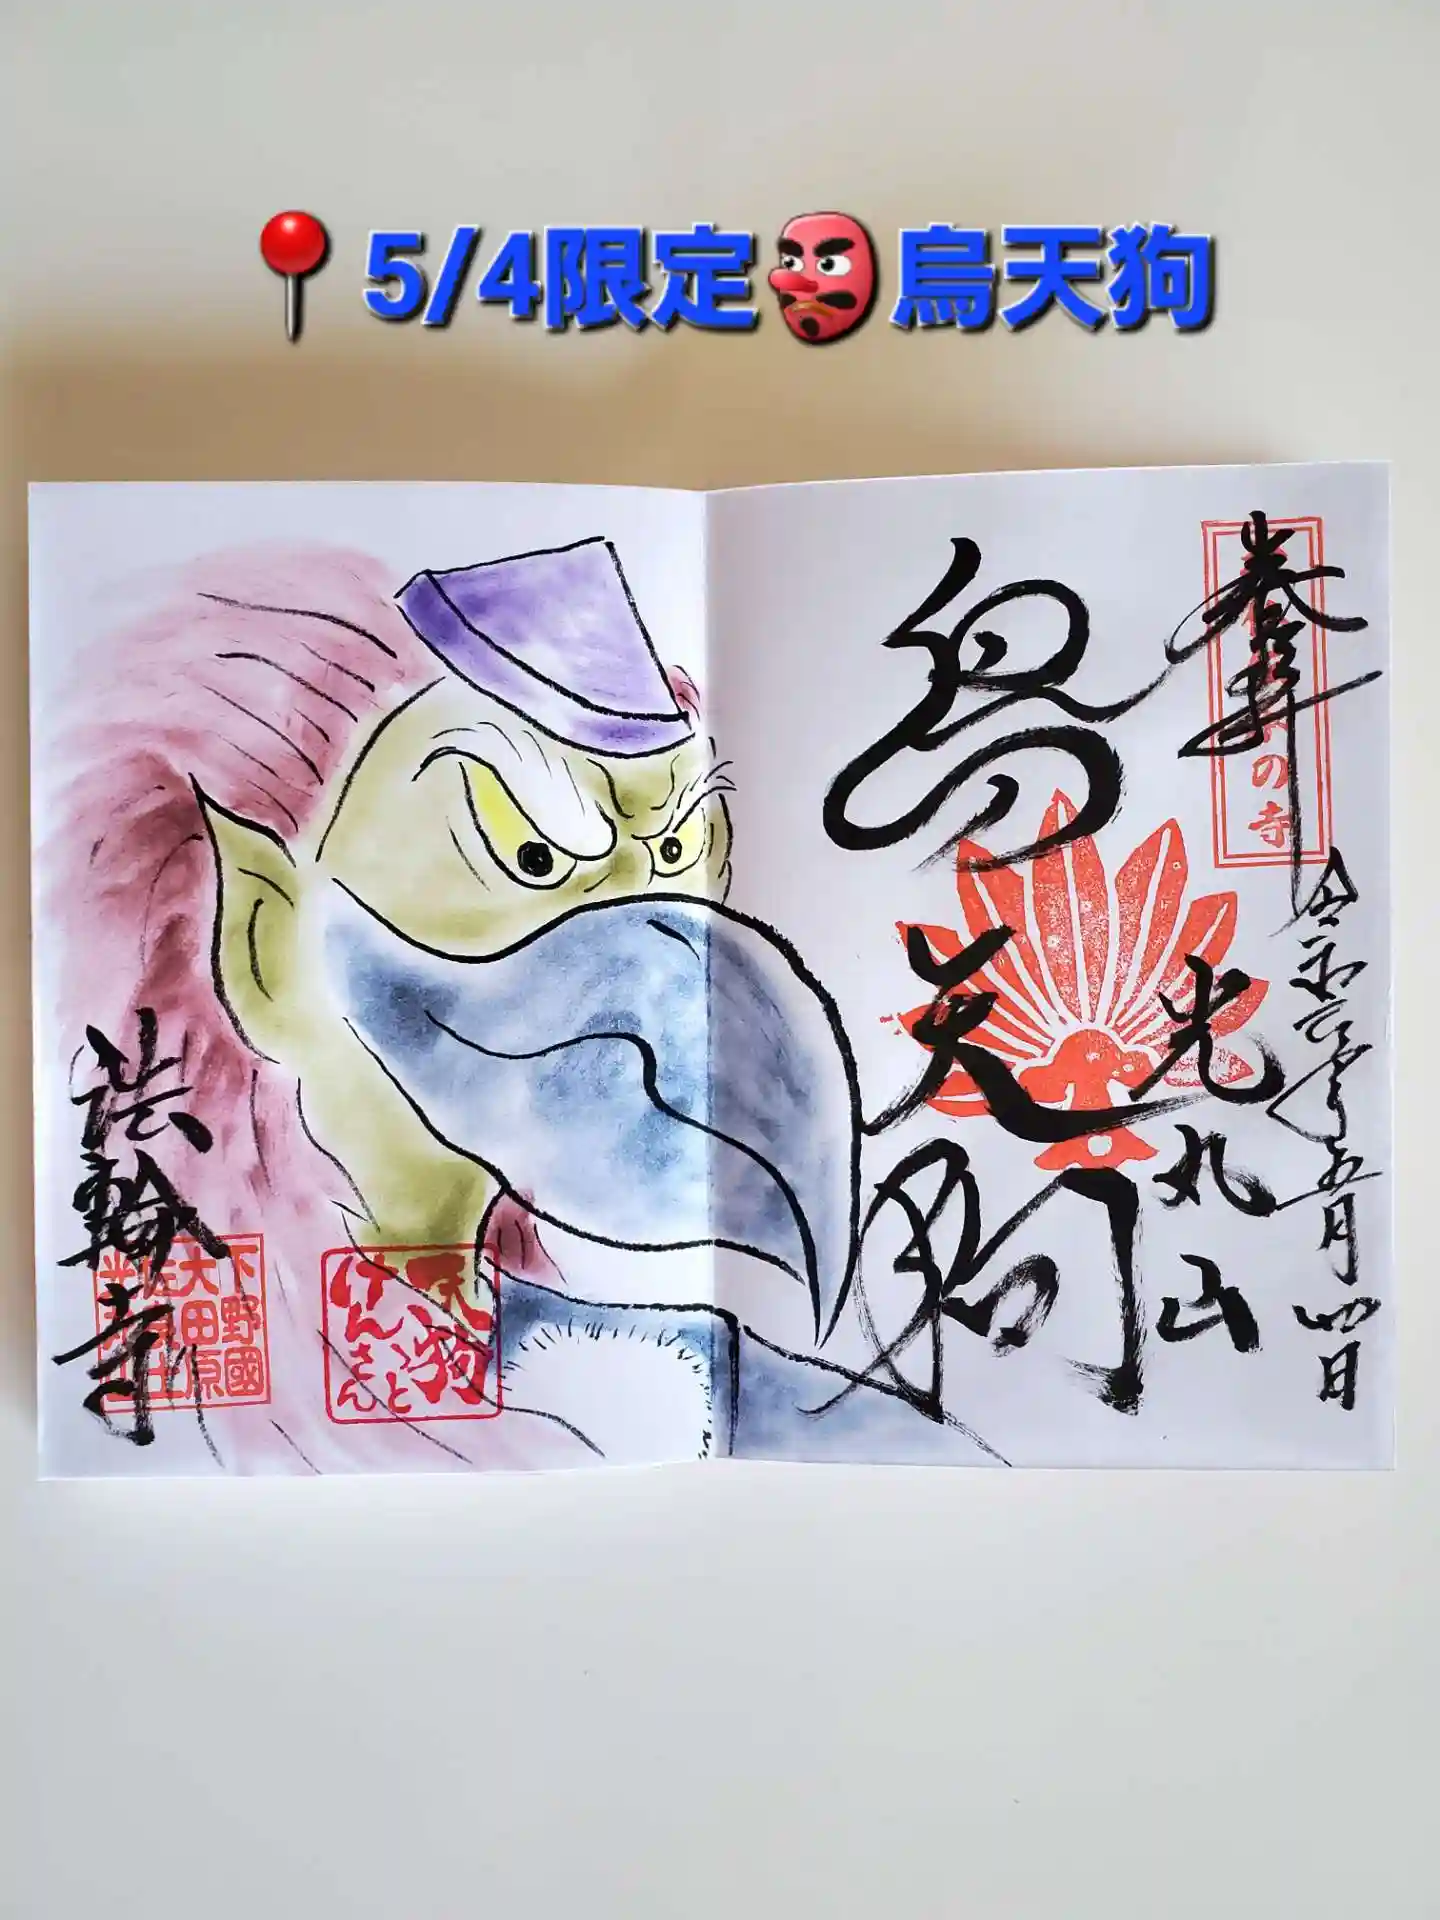 5/4限定👺烏天狗
奉拝
の寺
令和六年五月四日
烏天狗
光丸山
法輪寺
下野國
大田原
天狗
けんさん